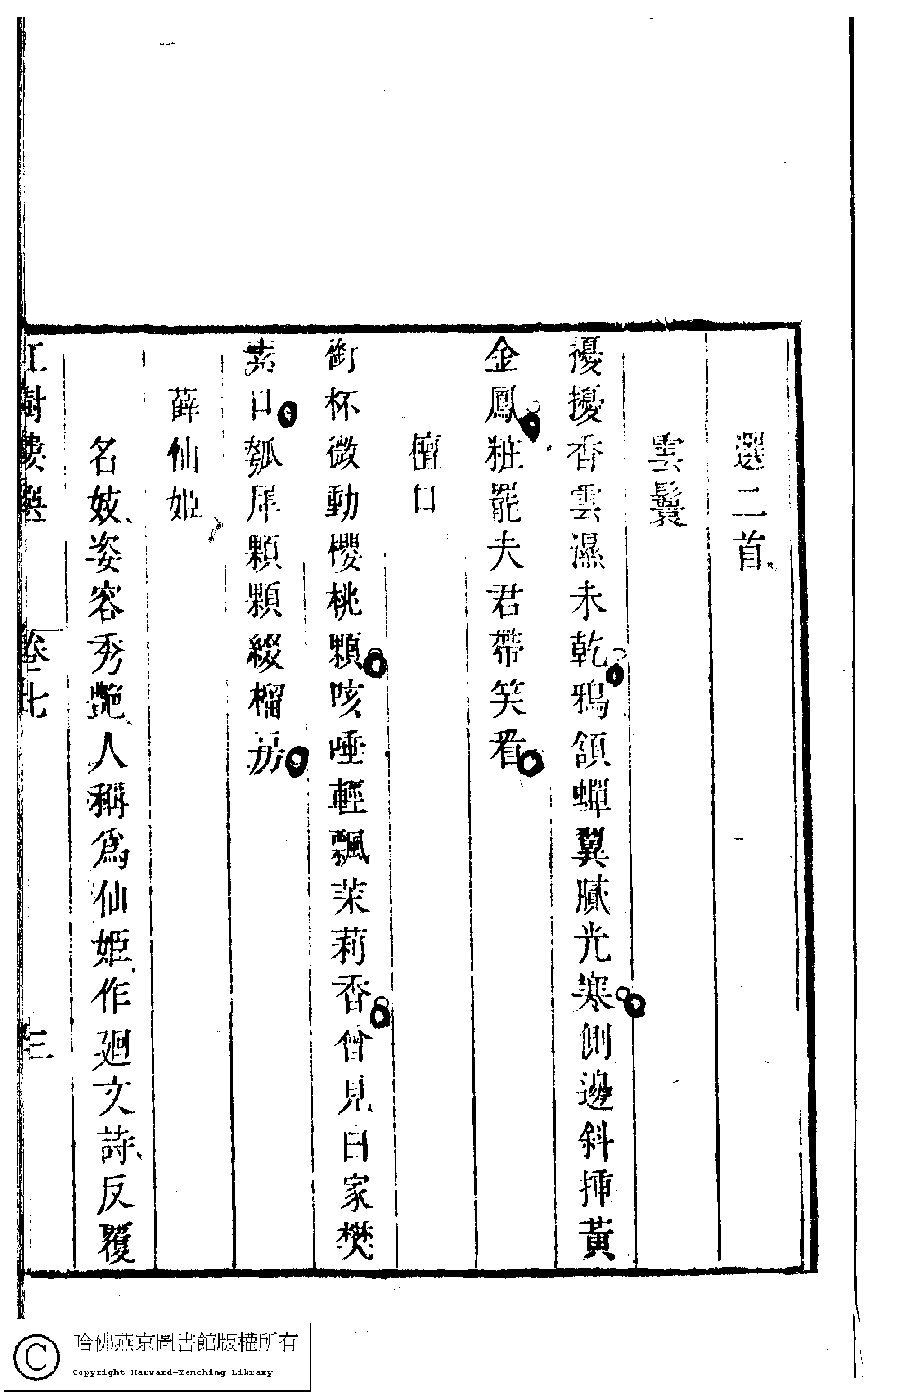 選二首
雲鬟
擾擾香雲濕未乾鴉領蟬翼膩光寒側邊斜挿黃
金鳳粧罷夫君帶笑看
檀口
銜杯微動櫻桃顆咳唾輕飄茉莉香曾見白家樊
素口瓠犀顆顆綴榴房
薛仙姬
名妓姿容秀艶人稱爲仙姬作廻文詩反覆
紅樹樓選 卷七 三
哈佛燕京圖書館版權所有
Copyright Harvard-Yenching Library